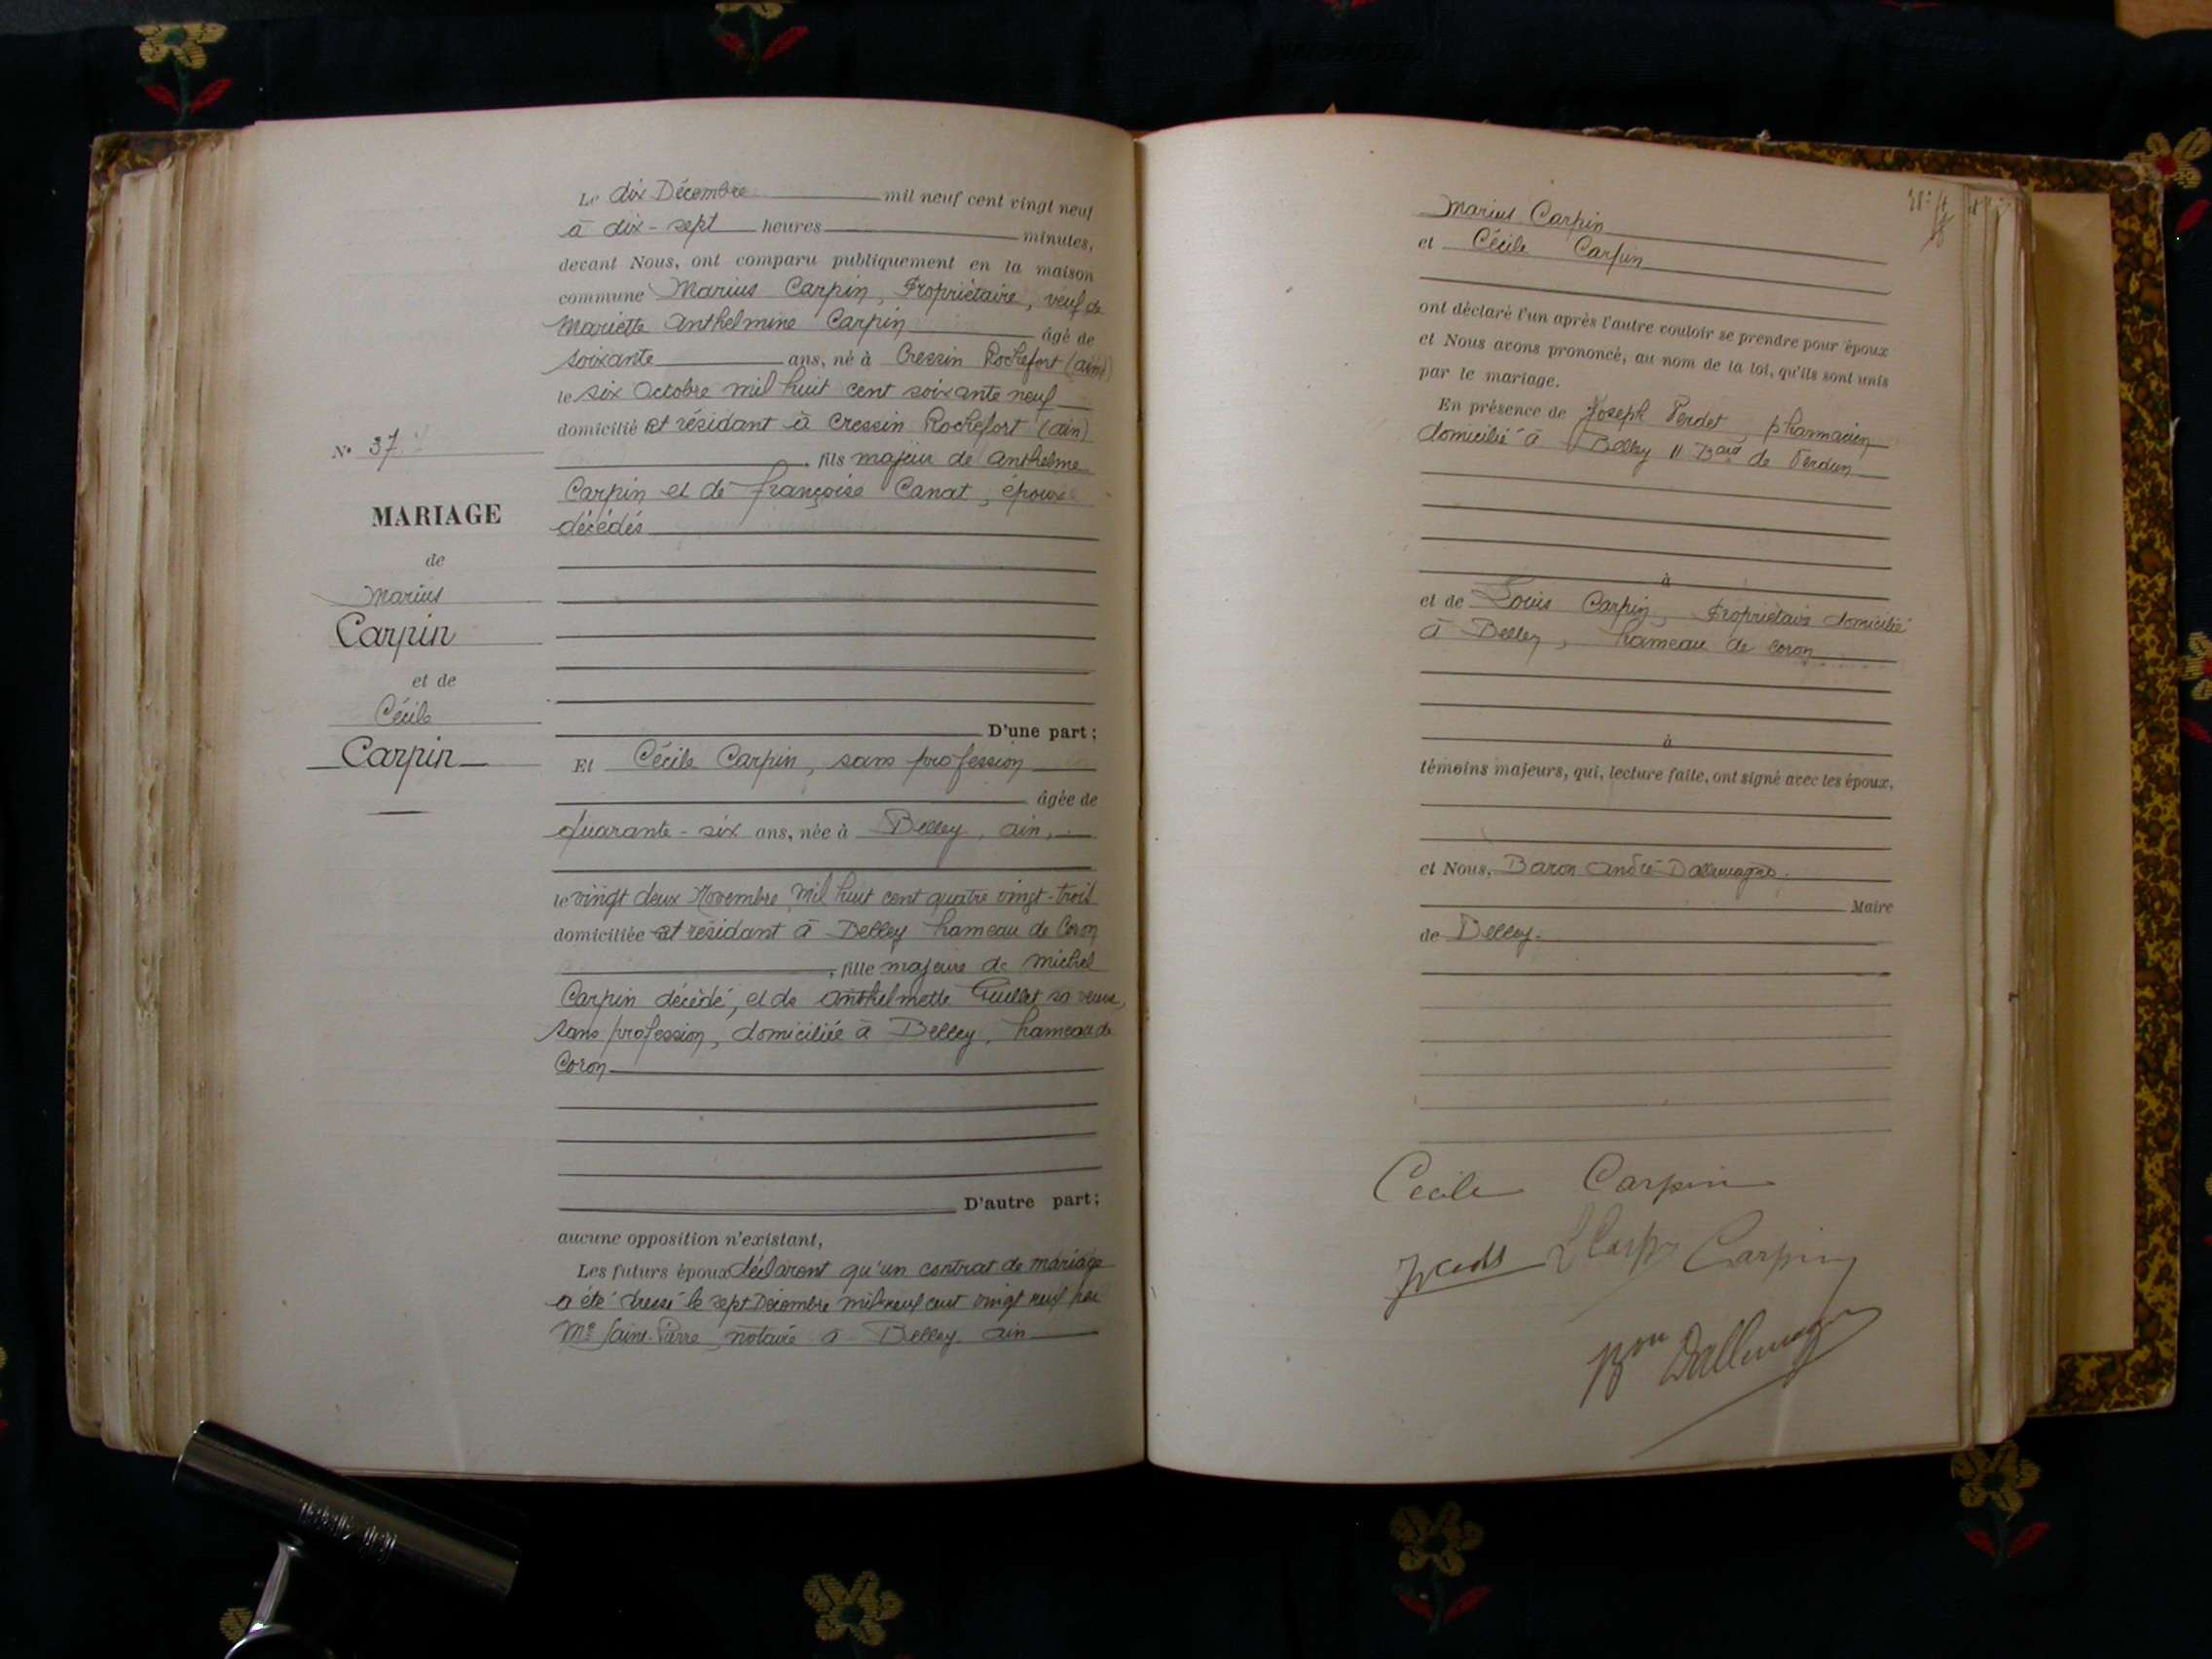 Le dix Décembre mil neuf cent vingt neuf
à dix-sept heures minutes,
devant Nous, ont comparu publiquement en la maison
commune Marius Carpin, Propriétaire, veuf de
Mariette Anthelmine Carpin âgé de
soixante ans, né à Cressin Rochefort (ain)
le six Octobre mil huit cent soixante neuf
domicilié et résidant à Cressin Rochefort (ain)
, fils majeur de Anthelme
Carpin et de Françoise Canat, époux
décédés
D'une part;
Et Cécile Carpin, sans profession
âgée de
quarante-six ans, née à Belley, ain,
le vingt deux Novembre mil huit cent quatre vingt-trois
domiciliée et résidant à Belley hameau de Coron
, fille majeure de Michel
Carpin décédé, et de Anthelmette Guillet sa veuve,
sans profession, domiciliée à Belley, hameau de
Coron
D'autre part;
aucune opposition n'existant,
Les futurs époux déclarent qu'un contrat de mariage
a été dressé le sept Décembre mil neuf cent vingt neuf par
Me Saint-Pierre notaire à Belley ain
N° 37
MARIAGE
de
Marius
Carpin
et de
Cécile
Carpin
Marius Carpin
et Cécile Carpin
ont déclaré l'un après l'autre vouloir se prendre pour époux
et Nous avons prononcé, au nom de la loi, qu'ils sont unis
par le mariage.
En présence de Joseph Perdet pharmacien
domicilié à Belley 11 Bard de Verdun
à
et de Louis Carpin, Propriétaire domicilié
à Belley, hameau de Coron
à
témoins majeurs, qui, lecture faite, ont signé avec les époux,
et Nous, Baron André Dallemagne.
Maire
de Belley.
Cecile Carpin
Carpin
Bon Dallemagne